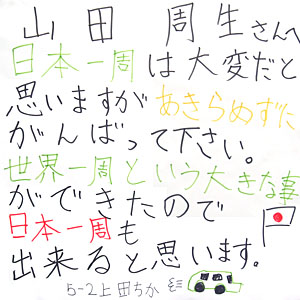 山田 周生さんへ
日本一周は大変だと
思いますがあきらめずに
がんばって下さい。
世界一周という大きな事
ができたので
日本一周も
出来ると思います。
5-2上田ちか